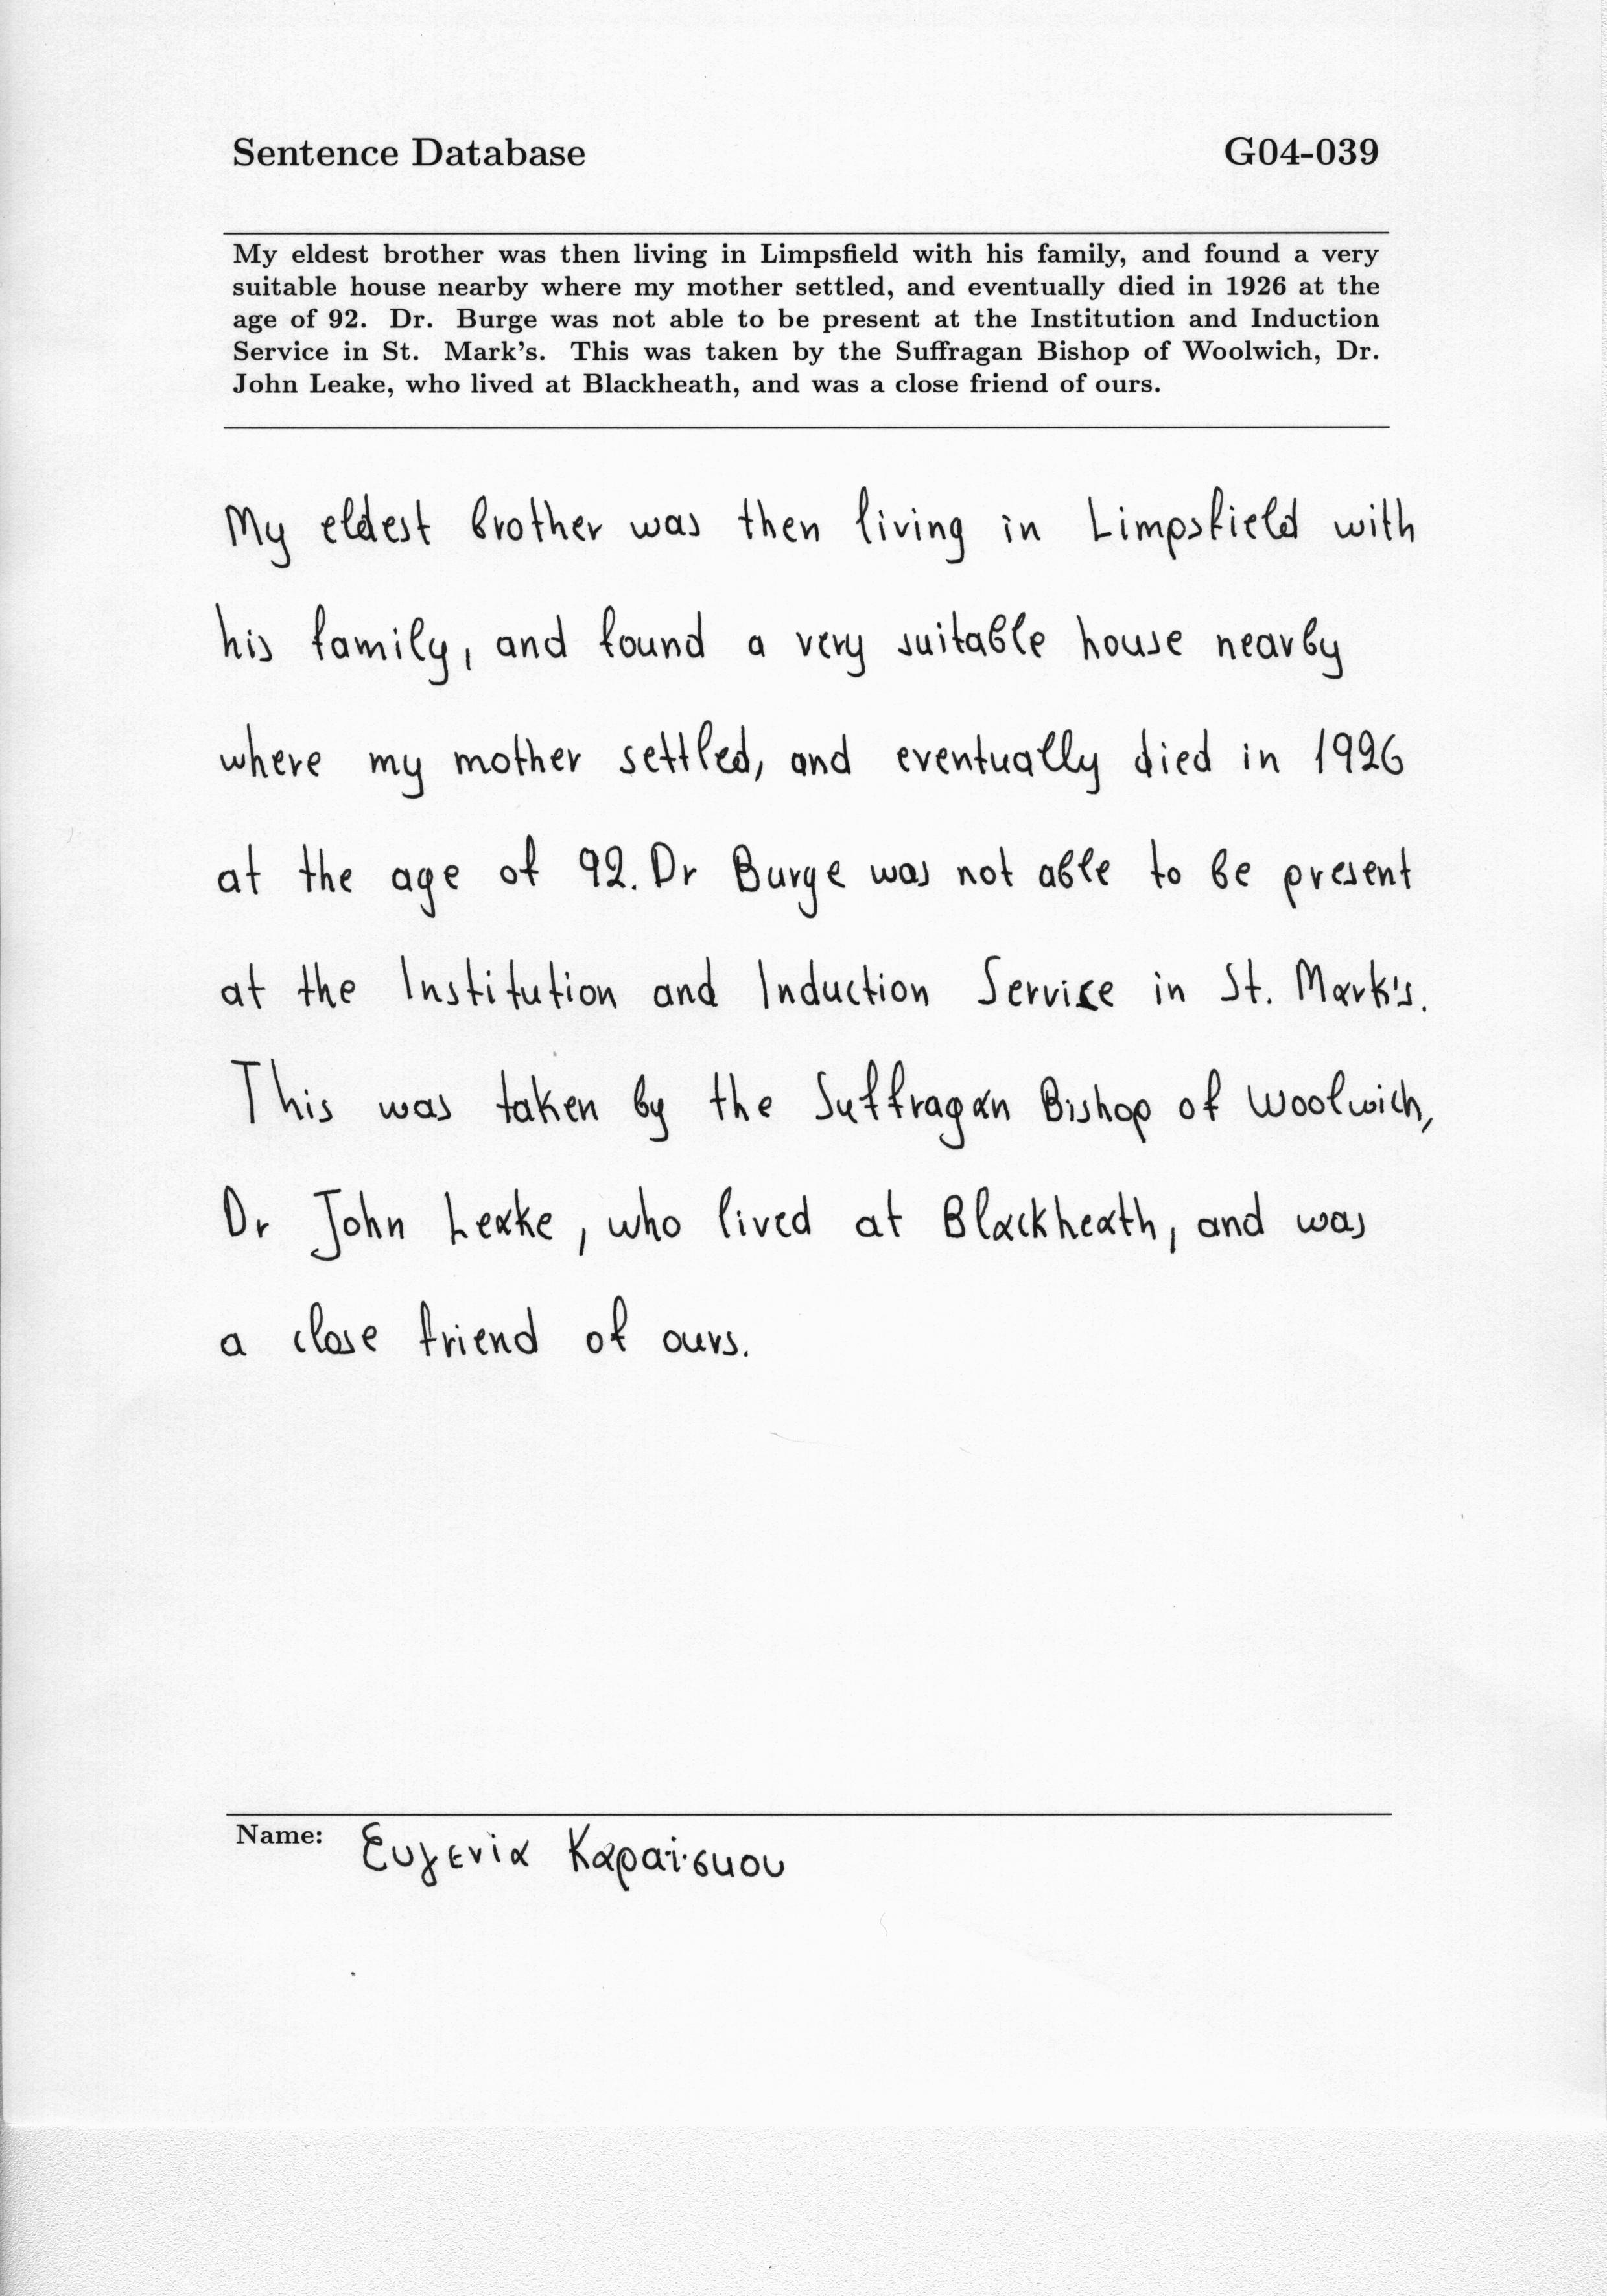 Sentence Database G04-039
My eldest brother was then living in Limpsfield with his family, and found a very
suitable house nearby where my mother settled, and eventually died in 1926 at the
age of 92. Dr. Burge was not able to be present at the Institution and Induction
Service in St. Mark's. This was taken by the Suffragan Bishop of Woolwich, Dr.
John Leake, who lived at Blackheath, and was a close friend of ours.
My eldest brother was then living in Limpsfield with
his family, and found a very suitable house nearby
where my mother settled, and eventually died in 1926
at the age of 92. Dr Burge was not able to be present
at the Institution and Induction Service in St. Mark's.
This was taken by the Suffragan Bishop of Woolwich,
Dr John Leake, who lived at Blackheath, and was
a close friend of ours.
Name: Ευγενία